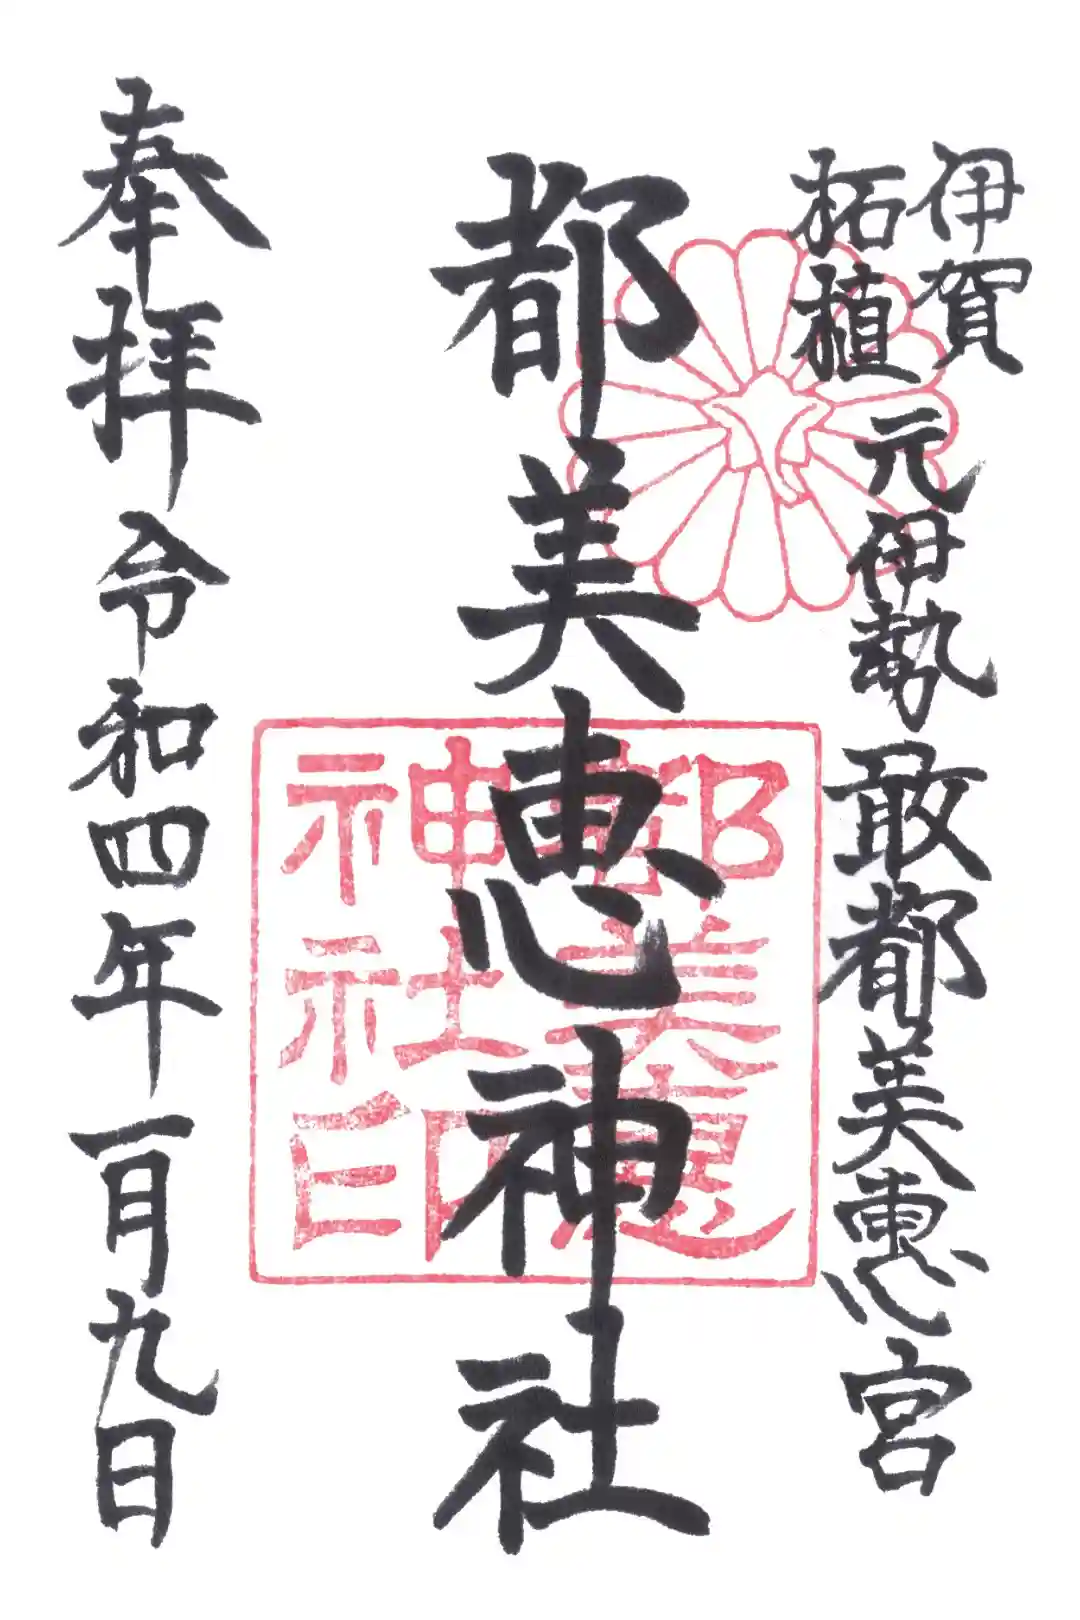 伊賀
柘植
元伊勢敢都美恵宮
都美恵神社
都美恵
神社印
奉拝 令和四年一月九日